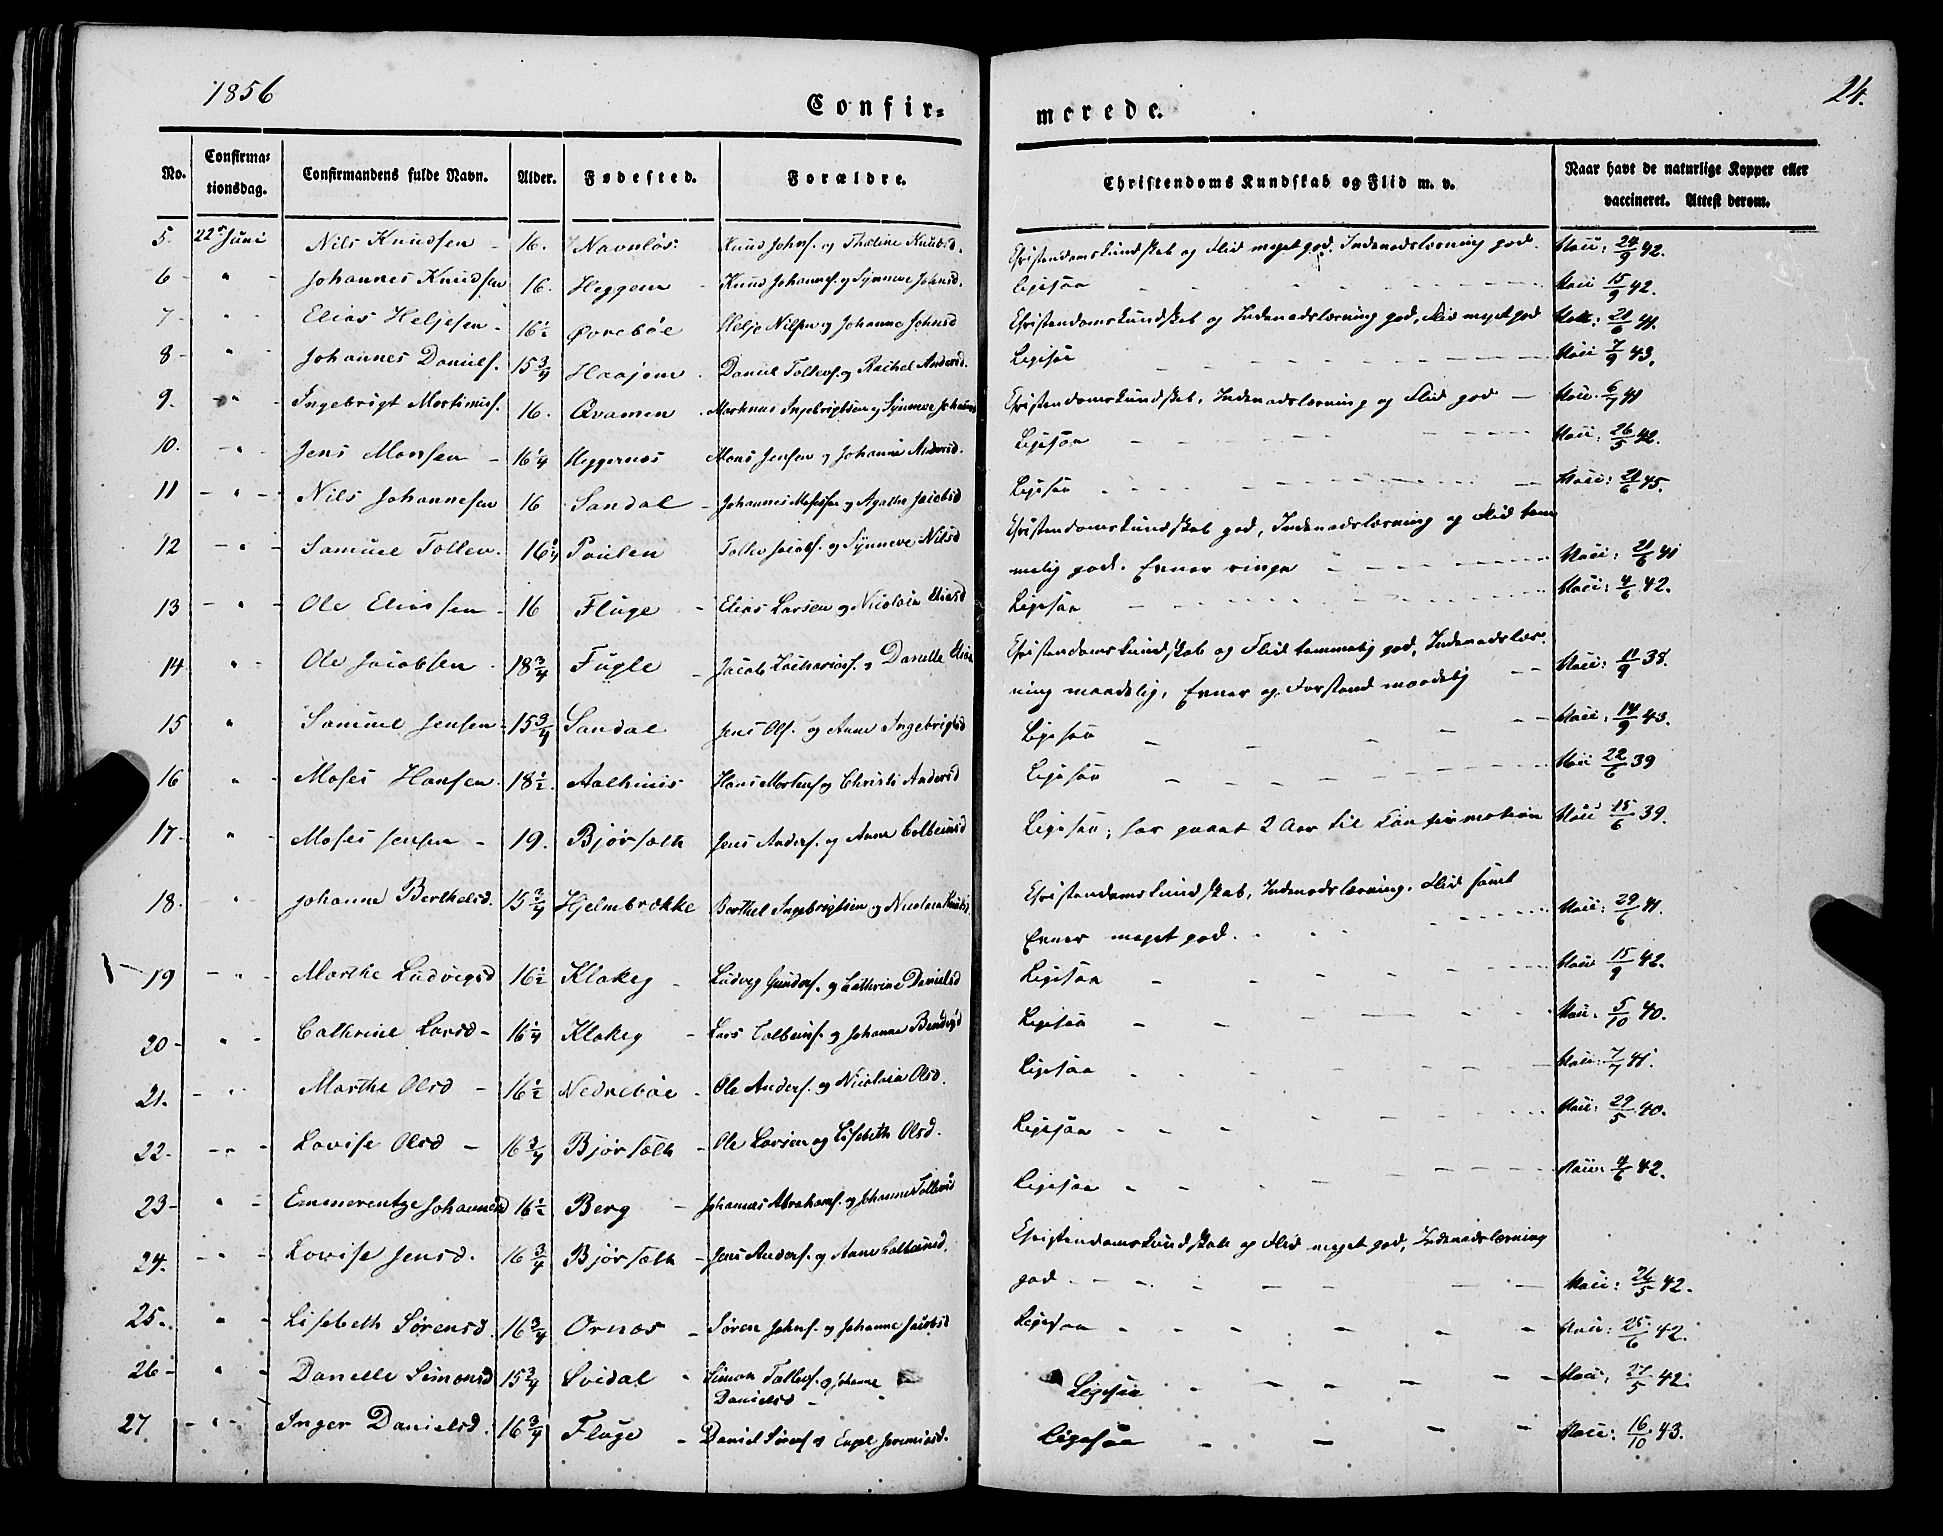 1856
Confir=
merede.
24.
No.
Confirma=
tionsdag.
Confirmandens fulde Navn.
Alder.
Fødested.
Forældre.
Christendoms Kundskab og Flid m. v.
Naar havt de naturlige Kopper eller
vaccineret. Attest derom.
5. 22de Juni Nils Knudsen - 16. Navnløs Knud Johnf. og Thaline Knudsd. Christendomskundskab og Flid meget god. Indenadslæsning god. Vacc: 24/9 42.
6 - " - Johannes Knudsen 16. Heggem Knud Johannesf. og Synneve Johnsd. Ligesaa Vacc 15/9 42.
7 - " - Elias Heljesen - 16½ Øvrebøe Helje Nilsen og Johanne Johnsd Christendomskundskab og Indenadslæsning god, Flid meget god Vacc: 21/6 41.
8 - " - Johannes Danielsf. 15¾ Haajem Daniel Tollevsf. og Rachel Andersd. Ligesaa Vacc 7/9 43.
9. - " - Ingebrigt Martinusf. 16. Qvamen Martinus Ingebrigtsen og Synneve Christendomskundskab, Indenadslæsning og Flid god - Vacc. 6/7 41
10. - " - Jens Monsen - 16¼ Heggernæs Mons Jensen og Johanne Andersd. Ligesaa Vacc: 26/5 42.
11 - " - Nils Johannesen 16 Sandal Johannes Mosessen og Agathe Jacobsd Ligesaa Vacc: 21/6 45.
12 - " - Samuel Tollev. 16¼ Paulen Tollev Jacobf. og Synneve Nilsd Christendomskundskab god, Indenadslæsning og Flid tem
melig god. Evner ringe Vacc: 21/6 41
13 - " Ole Eliassen - 16 Fluge Elias Larsen og Nicolaia Eliasd Ligesaa Vacc: 4/6 42.
14 " - Ole Jacobsen - 18¾ Fugle Jacob Zachariasf. og Danelle Christendomskundskab og Flid temmelig god, Indenadslæs-
ning maadelig, Evner og Forstand maadelig Vacc: 11/9 38.
15 " Samuel Jensen 15¾ Sandal Jens Olsf. og Anne Ingebrigtsd Ligesaa Vacc: 14/9 43.
16 " Moses Hansen. 18½. Aalhuus Hans Mortensf og Christi Andersd Ligesaa Vacc 22/6 39
17 - " - Moses Jensen - 19. Bjørsæth Jens Andersf. og Anne Colbeinsd Ligesaa; har gaaet 2 Aar til Confirmation Vacc 15/6 39.
18. " Johanne Berthelsd. 15¾ Hjelmbrække Berthel Ingebrigtsen og Nicolaia Christendomskundskab, Indenadslæsning, Flid samt
Evner meget god. Vacc: 29/6 41.
19 - " - Marthe Ludvigsd 16½ Klakeg Ludvig Gundersf. og Cathrine Danielsd Ligesaa Vacc 15/9 42.
20 - " - Cathrine Larsd - 16¼ Klakeg Lars Colbeinsf. og Johanne Ligesaa Vacc. 5/10 40.
21. - " Marthe Olsd - 16½ Nedrebøe Ole Andersf. og Nicolaia Olsd. Ligesaa Vacc: 7/7 41.
22. - " - Lovise Olsd - 16¾ Bjørsæth Ole Larsen og Lisebeth Olsd. Ligesaa Vacc: 29/5 40.
23 - " - Emmerentze Johannesd 16½ Berg Johannes Abrahamsf. og Johanne Tollevsd Ligesaa Vacc 4/6 42.
24. - " - Lovise Jensd. 16¾ Bjørsæth Jens Andersf. og Anne Colbeinsd. Christendomskundskab og Flid meget god, Indenadslæsning
god. Vacc: 26/5 42.
25. " - Lisebeth Sørensd. 16¾ Ornæs Søren Johnsf. og Johanne Jacobsd Ligesaa Vacc: 25/6 42.
26 - " - Danelle Simonsd 15¾ Svidal Simon Tollevsf. og Johanne
Danielsd Ligesaa Vacc: 27/5 42.
27 - " - Inger Danielsd. 16¾ Fluge Daniel Sørensf og Engel Jeremiasd. Ligesaa Vacc: 16/10 43.